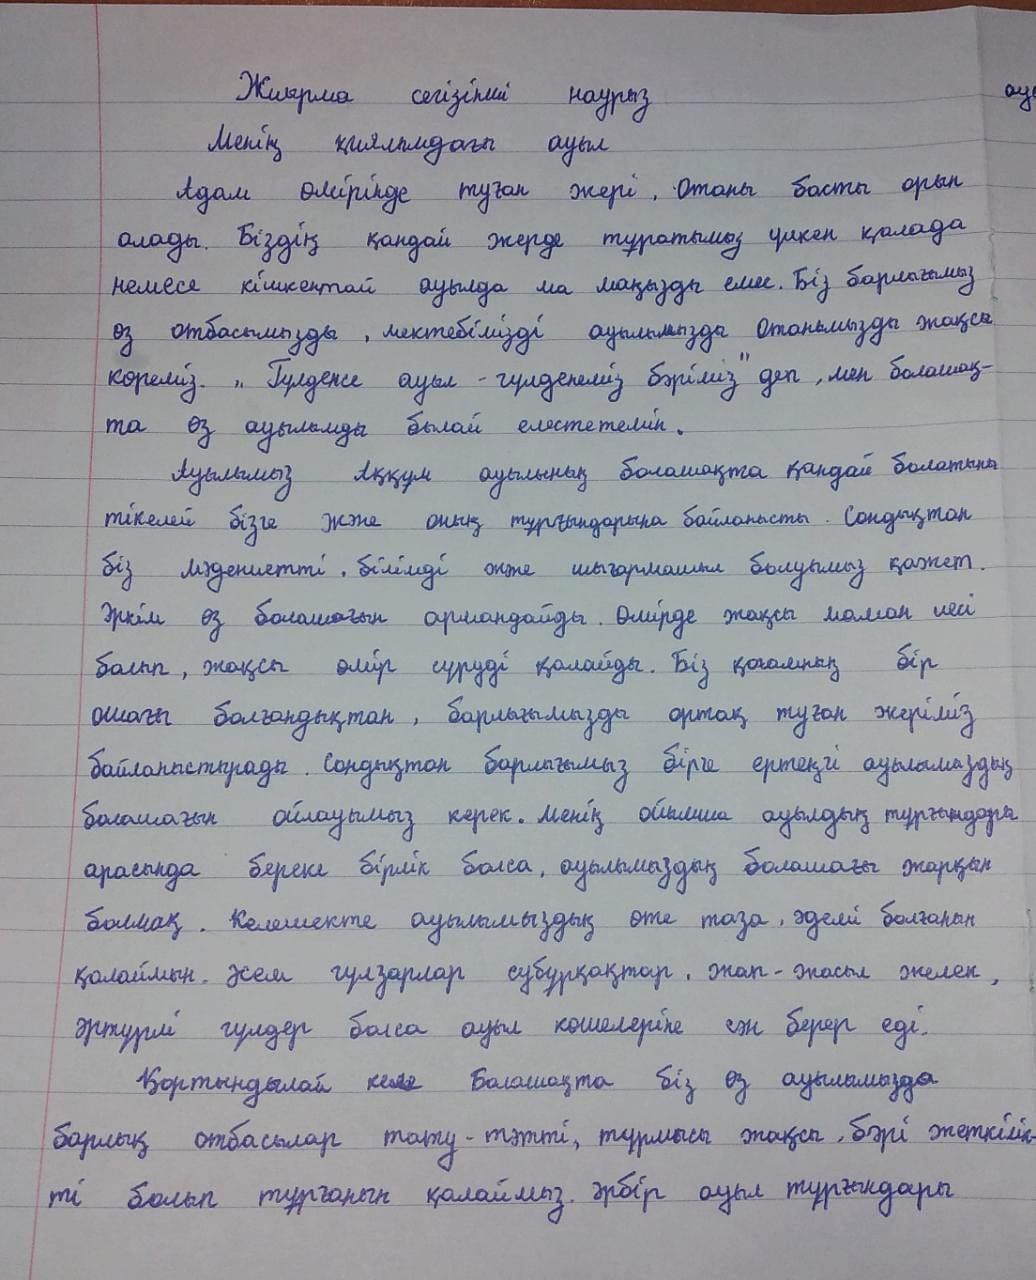 Жиырма сегізінші наурыз
Менің қиялымдағы ауыл
Адам өмірінде туған жері, Отаны басты орын
алады. Біздің қандай жерде тұратымыз үлкен қалада
немесе кішкентай ауылда ма маңызды емес. Біз барлығымыз
өз отбасымызды, мектебімізді ауылымызды Отанымызды жақсы
көреміз. „Гүлденсе ауыл - гүлденеміз бәріміз" деп, мен болашақ-
та өз ауылымды былай елестетемін.
Ауылымыз Аққұм ауылының болашақта қандай болатыны
тікелей бізге және оның тұрғындарына байланысты. Сондықтан
біз мәдениетті, білімді және шығармашыл болуымыз қажет.
Әркім өз болашағын армандайды. Өмірде жақсы маман иесі
болып, жақсы өмір сүруді қалайды. Біз қоғамның бір
ошағы болғандықтан, барлығымызды ортақ туған жеріміз
байланыстырады. Сондықтан барлығымыз бірге ертеңгі ауылымыздың
болашағын ойлауымыз керек. Менің ойымша ауылдың тұрғындары
арасында береке бірлік болса, ауылымыздың болашағы жарқын
болмақ. Келешекте ауылымыздың өте таза, әдемі болғанын
қалаймын. Әсем гүлзарлар субұрқақтар, жап-жасыл желек,
әртүрлі гүлдер болса ауыл көшелеріне сән берер еді.
Қортындылай келе Болашақта біз өз ауылымызда
барлық отбасылар тату-тәтті, тұрмысы жақсы, бәрі жеткілік-
ті болып тұрғанын қалаймыз. Әрбір ауыл тұрғындары